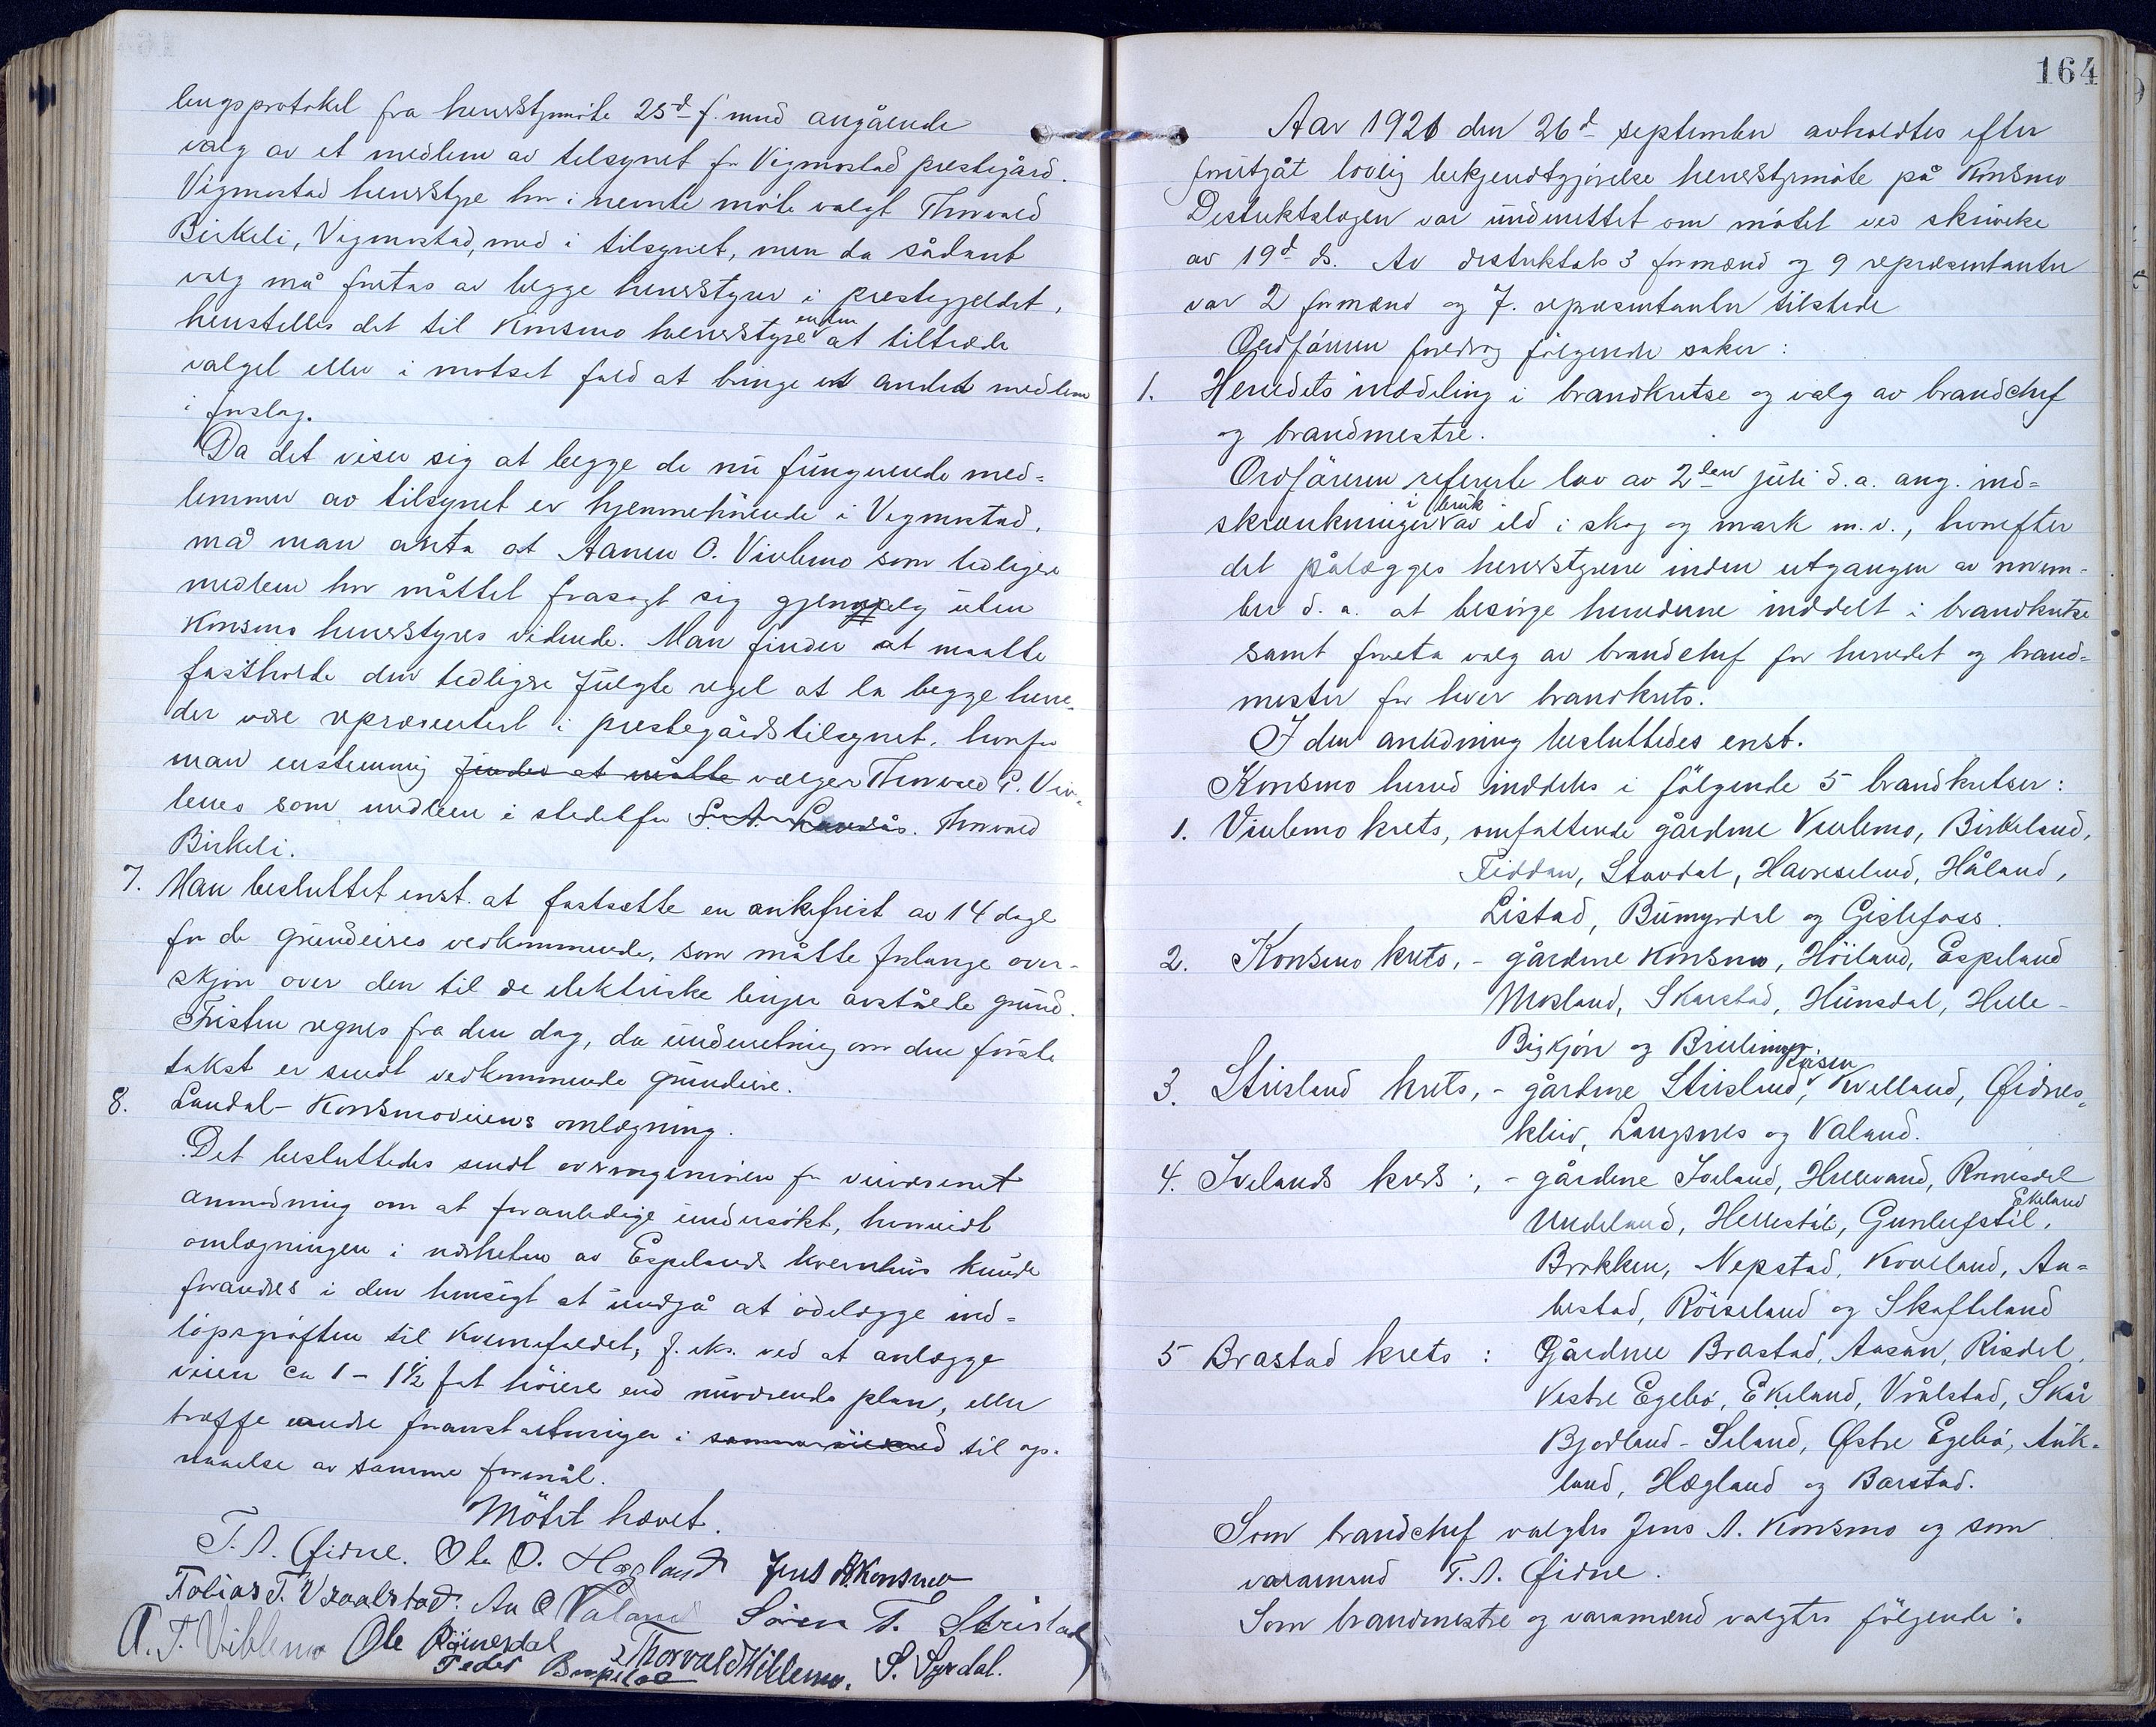 lingsprotokol fra herredstyrmöte 25d f. mnd angående
valg av et medlem av tilsynet for Vigmostad prestegård.
Vigmostad herredstyre har i nevnte möte valgt Thorvald
Birkeli, Vigmostad, med i tilsynet, men da sådant
valg må foretas av begge herredstyrer i prestegjeldet,
henstilles det til Konsmo herredstyre enten at tiltræde
valget eller i motsat fald at bringe et andet medlem
i forslag.
Da det viser sig at begge de nu fungerende med=
lemmer av tilsynet er hjemmehörende i Vigmostad,
må man anta at Aanen O. Viblemo som tidligere
medlem har måttet frasagt sig gjenvalg uten
Konsmo herredstyres vidende. Man finder at maatte
fastholde den tidligere fulgte regel at la begge herre-
der være repræsentert i prestegårdstilsynet, hvorfor
man enstemmig finder at måtte vælger Thorvald G. Vib-
lemo som medlem i stedetfor S. A. Landås. Thorvald
Birkeli.
7. Man besluttet enst. at fastsætte en ankefrist av 14 dage
for de grundeieres vedkommende, som måtte forlange over-
skjön over den til de elektriske linjer avståtte grund.
Fristen regnes fra den dag, da underretning om den förste
takst er sendt vedkommende grundeiere.
8. Laudal-Konsmoveiens omlægning.
Det besluttedes sendt avd.ingeniören for veivæsenet
anmodning om at foranledige undersökt, hvorvidt
omlægningen i nærheten av Espelands kvernhus kunde
forandres i den hensigt at undgå at ödelægge ind=
löpsgröften til kvernefaldet, f. eks. ved at anlægge
veien ca 1 - 1½ fot höiere end nuværende plan, eller
træffe andre foranstaltninger i samme öiemed til op-
naaelse av samme formål.
Mötet hævet.
T. A. Øidne. Ole O. Hægland Jens A. Konsmo
Tobias T. Vraalstad. An O Valand Sören T. Strisland
A. T. Viblemo Ole Röinesdal Thorvald Viblemo. S. Syrdal.
Peder
164
Aar 1921 den 26d september avholdtes efter
forutgåt lovlig bekjendtgjörelse herredstyrmöte på Konsmo
Distriktslægen var underrettet om mötet ved skrivelse
av 19d ds. Av distriktets 3 formænd og 9 repræsentanter
var 2 formænd og 7. repræsentanter tilstede
Ordföreren foredrog fölgende saker:
1. Herredets inddeling i brandkretse og valg av brandchef
og brandmestre.
Ordföreren refererte lov av 2den juli d.a. ang. ind=
skrænkninger i bruk av ild i skog og mark m.v., hvorefter
det pålægges herredstyrene inden utgangen av novem-
ber d. a. at besörge herrederne inddelt i brandkretse
samt foreta valg av brandchef for herredet og brand=
mester for hver brandkrets.
I den anledning besluttedes enst.
Konsmo herred inddeles i fölgende 5 brandkretser:
1. Viblemo krets, omfattende gårdene Viblemo, Birkeland,
Fiddan, Stavdal, Haureselend, Håland,
Listad, Bumyrdal og Gislefoss.
2. Konsmo krets, - gårdene Konsmo, Höiland, Espeland
Mosland, Skarstad, Hunsdal, Helle-
Bigkjön og Breilimo
3. Strisland krets, - gårdene Strisland, Roisen Kvelland, Øidnes=
kleiv, Langsnes og Valand.
4. Ivelands kreds:, - gårdene Iveland, Hellevand, Rönnesdal
Undeland, Hellestöl, Gunleifstöl, Ekeland
Brokken, Nepstad, Kvæland, Au=
bestad, Röiseland og Skofteland
5 Brastad krets: Gårdene Brastad, Aasan, Risdal,
Vestre Egebö, Ekeland, Vrålstad, Skår
Bjorland - Seland, Östre Egebö, Auk=
land, Hægland og Barstad.
Som brandchef valgtes Jens A. Konsmo og som
varamand T. A. Øidne.
Som brandmestre og varamænd valgtes fölgende: